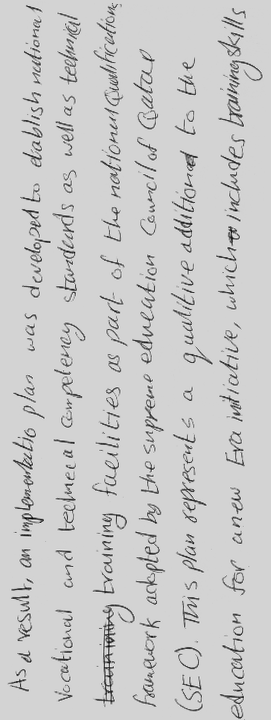 As a result, an implementatio plan was developed to establish national
Vocational and technical competency standards as well as technical
training facilities as part of the national Qualification
framework adopted by the supreme education Council of Qatar
(SEC). This plan represents a qualitive addition to the
education for anew Era initiative, which includes training skills